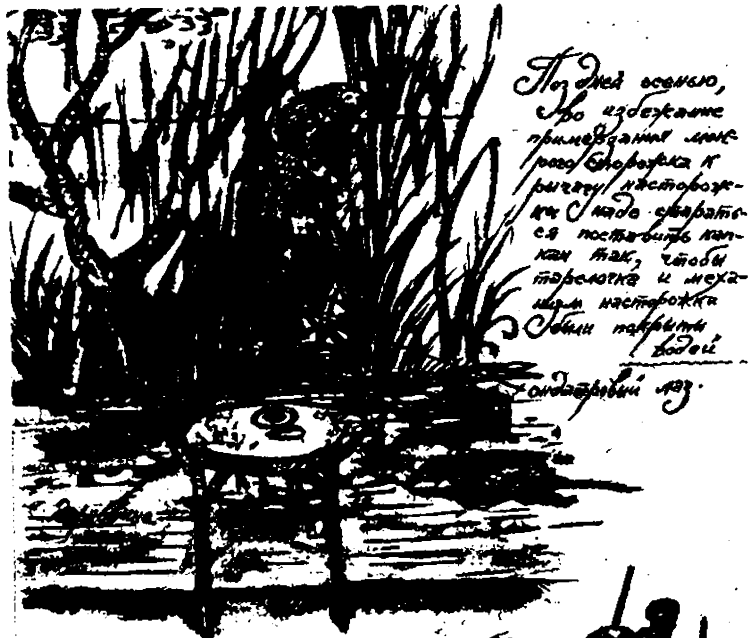 Поздней осенью,
во избежание
примерзания мок-
рого сторожка к
рычагу насторож-
ки надо старать-
ся поставить кап-
кан так, чтобы
тарелочка и меха-
низм насторожки
были покрыты
водой
ондатровый лаз.